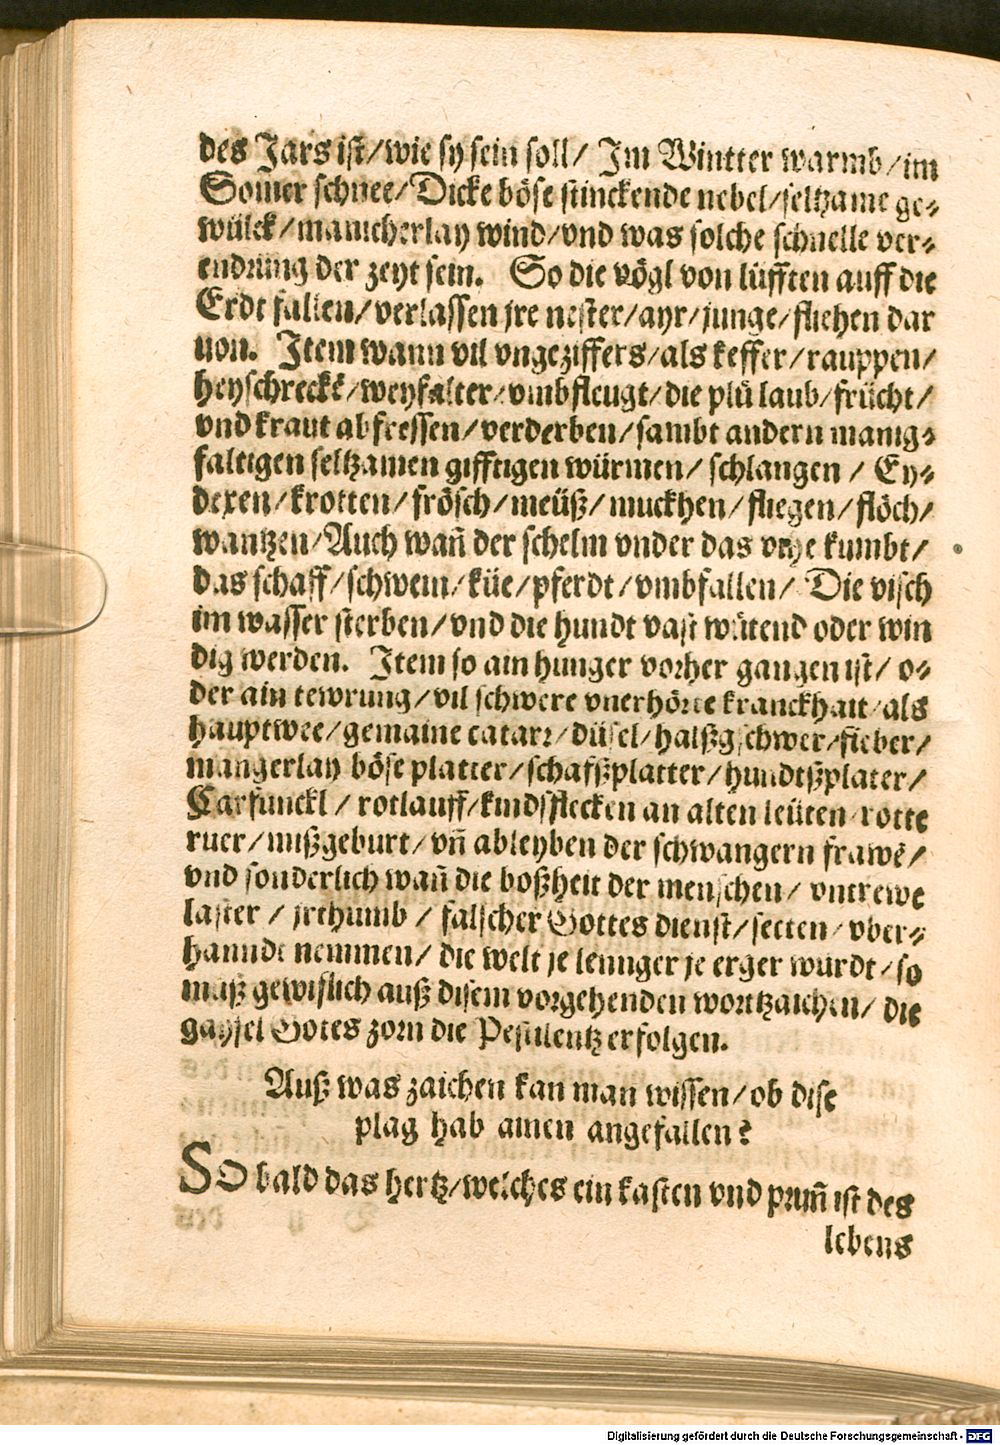 des Jars ist/wie sy sein soll/ Im Wintter warmb/im
Som̄er schnee/Dicke böse stinckende nebel/seltzame ge⸗
wülck/manicherlay wind/vnd was solche schnelle ver⸗
endrung der zeyt sein. So die vögl von lüfften auff die
Erdt fallen/verlassen jre nester/ayr/junge/fliehen dar
uon. Item wann vil vngeziffers/als keffer/rauppen/
heyschreckē/weyfalter/vmbfleugt/die plů laub/frücht/
vnd kraut abfressen/verderben/sambt andern manig⸗
faltigen seltzamen gifftigen würmen/ schlangen / Ey⸗
dexen/krotten/frösch/meüß/muckhen/fliegen/flöch/
wantzen/Auch wañ der schelm vnder das vihe kumbt/
das schaff/schwein/küe/pferdt/vmbfallen/ Die visch
im wasser sterben/vnd die hundt vast wütend oder win
dig werden. Item so ain hunger vorher gangen ist/ o⸗
der ain tewrung/vil schwere vnerhörte kranckhait/als
hauptwee/gemaine catarr/düsel/halßgschwer/fieber/
mangerlay böse platter/schafßplatter/hundtßplater/
Carfunckl / rotlauff/kindsflecken an alten leüten/rotte
ruer/mißgeburt/vñ ableyben der schwangern frawē/
vnd sonderlich wañ die boßheit der menschen/ vntrewe
laster / jrthumb / falscher Gottes dienst/secten/vber⸗
hanndt nemmen/ die welt je lennger je erger würdt/so
můß gewißlich auß disem vorgehenden wortzaichen/ die
gaysel Gotes zorn die Pestilentz erfolgen.
Auß was zaichen kan man wissen/ob dise
plag hab ainen angefallen?
SO bald das hertz/welches ein kasten vnd prum̄ ist des
lebens
Digitalisierung gefördert durch die Deutsche Forschungsgemeinschaft - DFG